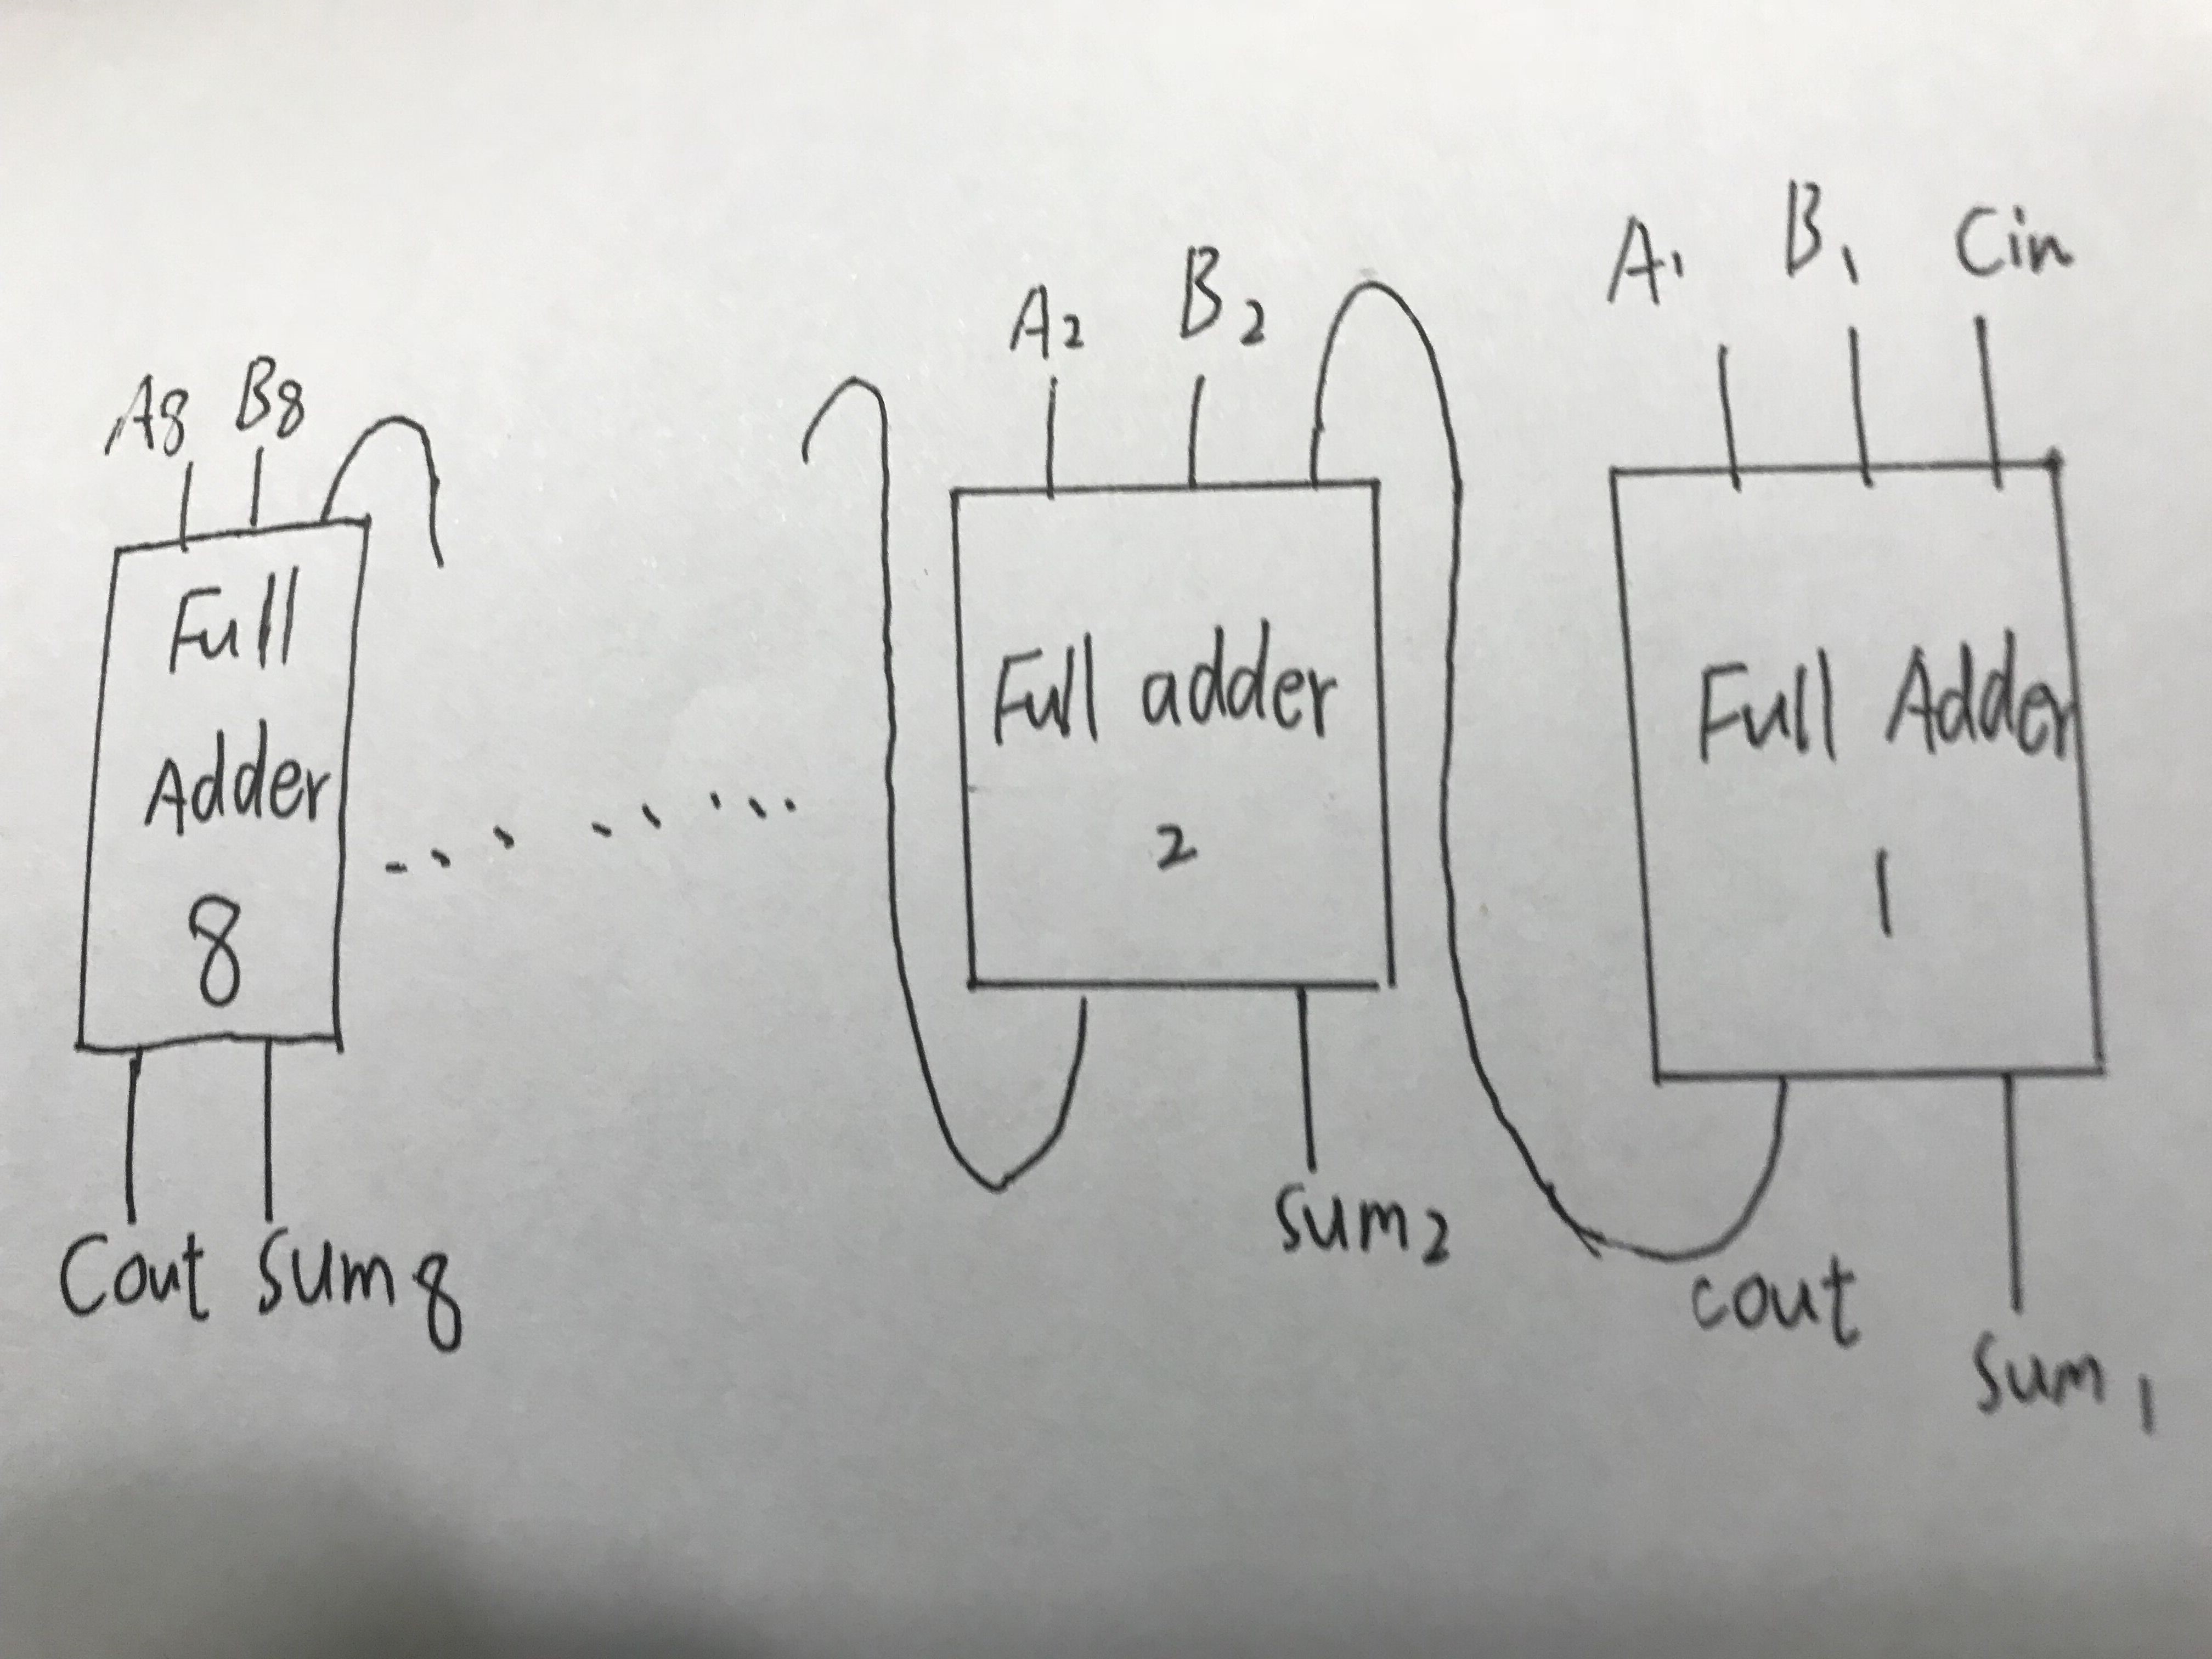 A8 B8
Full
Adder
8
Cout Sum8
A2 B2
Full adder
2
Sum2
A1 B1 Cin
Full Adder
1
cout
Sum1